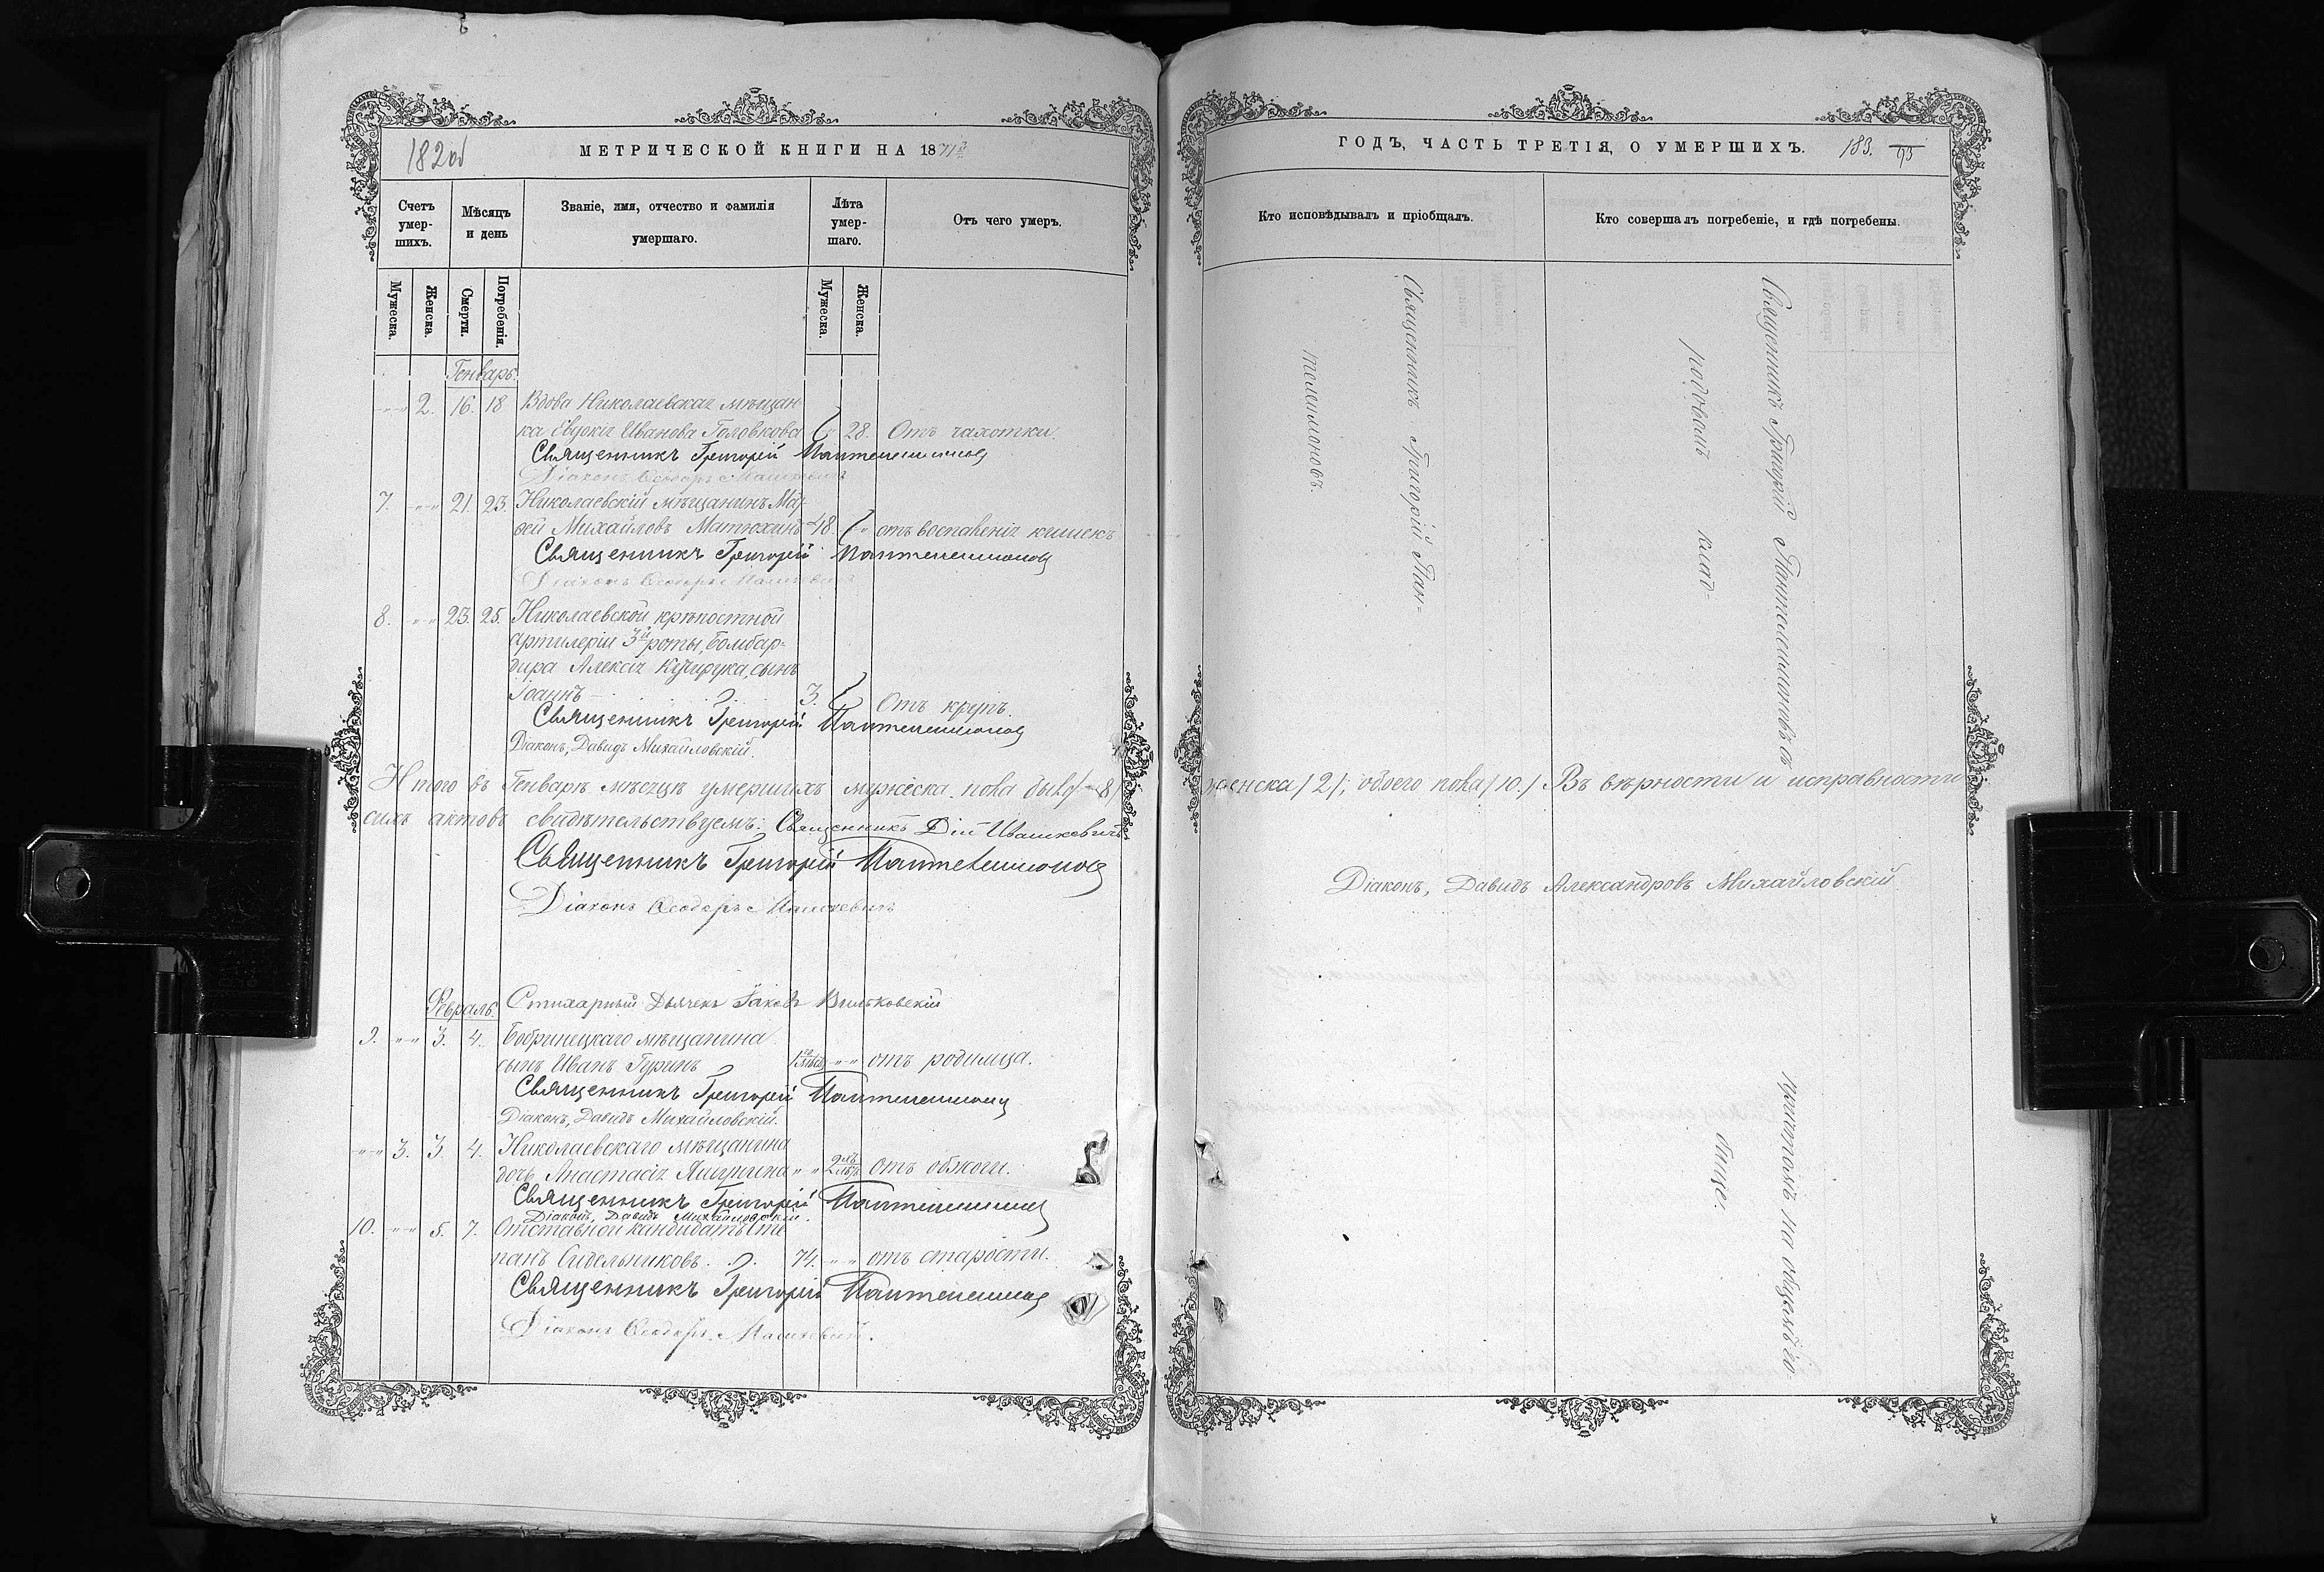 182 об
МЕТРИЧЕСКОЙ КНИГИ НА 1871й
Счетъ умер-шихъ.
Мѣсяцъ и день
Званіе, имя, отчество и фамилія умершаго.
Лѣта умер-шаго.
Отъ чего умеръ.
Мужеска.
Женска.
Смерти.
Погребенія.
Мужеска.
Женска.
Генварь.
2. 16. 18 Вдова Николаевская мѣщан-
ка Евдокія Иванова Головкова " 28. Отъ чахотки.
Священникъ Григорій Пантелеимоновъ
Діаконъ Ѳеодоръ
7. " " 21. 23. Николаевскій мѣщанинъ Мат-
вѣй Михайловъ Матюхинъ 48. " отъ воспаленія кишекъ
Священникъ Григорій Пантелеимоновъ
Діаконъ Ѳеодоръ
8. " " 23. 25. Николаевской крѣпостной
артилеріи 3й роты, бомбар-
дира Алексія сынъ
Іоаннъ 3. Отъ крупъ.
Священникъ Григорій Пантелеимоновъ
Діаконъ, Давидъ Михайловскій.
Итого въ Генварѣ мѣсяцѣ умершихъ мужеска пола было /8/
сихъ актовъ свидѣтельствуемъ: Священникъ Дій Ивашкевичъ
Священникъ Григорій Пантелеимоновъ
Діаконъ Ѳеодоръ
Стихарный Дьячекъ Іаковъ Вильковскій
Февраль.
9. " " 3. 4. Бобринецкаго мѣщанина
сынъ Иванъ Гуринъ " " отъ родимца.
Священникъ Григорій Пантелеимоновъ
Діаконъ, Давидъ Михайловскій.
" " 3. 3. 4. Николаевскаго мѣщанина
дочь Анастасія " " отъ обжоги.
Священникъ Григорій Пантелеимоновъ
Діаконъ, Давидъ Михайловскій.
10. " " 5. 7. Отставной кандидатъ Сте-
панъ Сидельниковъ. 74. " " отъ старости.
Священникъ Григорій Пантелеимоновъ
Діаконъ Ѳеодоръ
ГОДЪ, ЧАСТЬ ТРЕТІЯ, О УМЕРШИХЪ.
183.
93
Кто исповѣдывалъ и пріобщалъ.
Кто совершалъ погребеніе, и гдѣ погребены.
Священникъ Григорій Пан=
телеимоновъ.
Священникъ Григорій Пантелеимоновъ съ
причтомъ на общемъ го-
родовомъ клад-
бище.
женска /2/; обоего пола /10./ Въ вѣрности и исправности
Діаконъ, Давидъ Александровъ Михайловскій